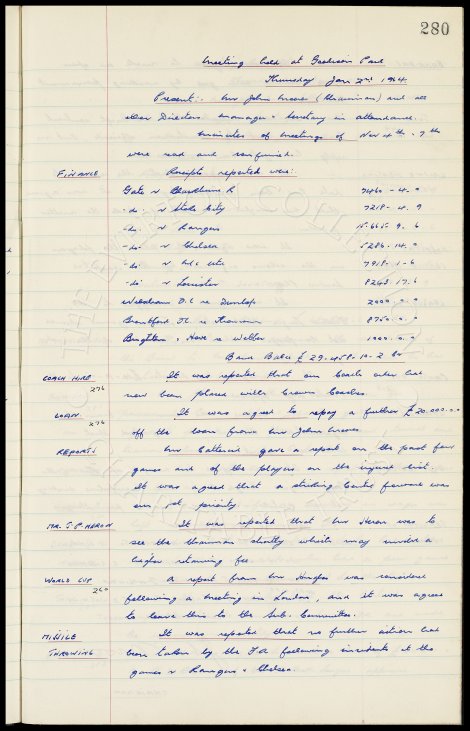 280
Meeting held at Goodison Park
Thursday Jan 2nd 1964
Present:- Mr John Moores (Chairman) and all
other Directors Manager & Secretary in attendance.
Minutes of meetings of Nov 4th - 7th
were read and confirmed.
FINANCE Receipts reported were:
Gate v Blackburn R 7460 - 4. 0
-do- v Stoke City 7218. 4. 9
-do- v Rangers 15.665. 9. 6
-do- v Chelsea 5286. 14. 0
-do- v Utd 7918. 1. 6
-do- v Leicester 8243. 17. 6
D.C. re Dunlop 2000. 0. 0
Brentford F.C. re 8750. 0. 0
Brighton & Hove re Webber 1000. 0. 0
Bank Balce £ 29.458. 10. 2
COACH HIRE It was reported that our Coach order had
276 now been placed with Crown Coaches.
LOAN It was agreed to repay a further £20.000.00
276 off the loan from Mr John Moores.
REPORTS Mr Catterick gave a report on the past few
games and of the players on the injured list.
It was agreed that a striking Centre forward was
our 1st priority.
MR. T. P. HERON It was reported that Mr Heron was to
see the Chairman shortly which may a
higher retaining fee.
WORLD CUP A report from Mr Hughes was considered
260 following a meeting in London, and it was agreed
to leave this to the Sub. Committee.
MISSILE It was reported that no further action had
THROWING been taken by the F.A following incidents at the
games v Rangers & Chelsea.